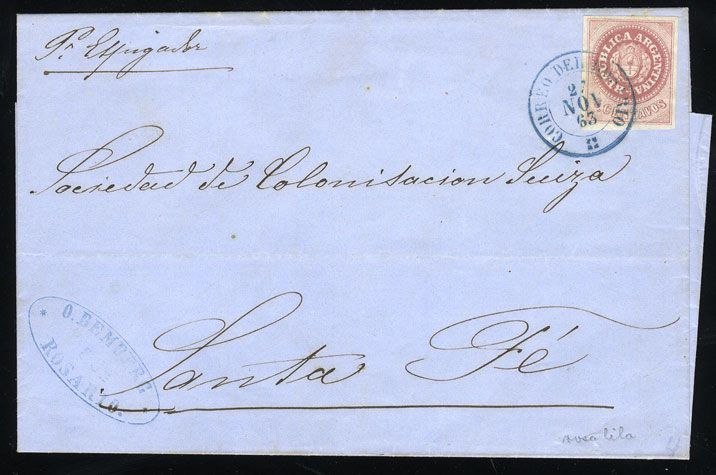 Pr Espigador
REPUBLICA ARGENTINA
CENTAVOS
CORREO DEL ROSARIO
27
NOV
63
Sociedad de Colonisacion Suiza
O. BEMBERG
ROSARIO.
Santa Fé
rosa lila